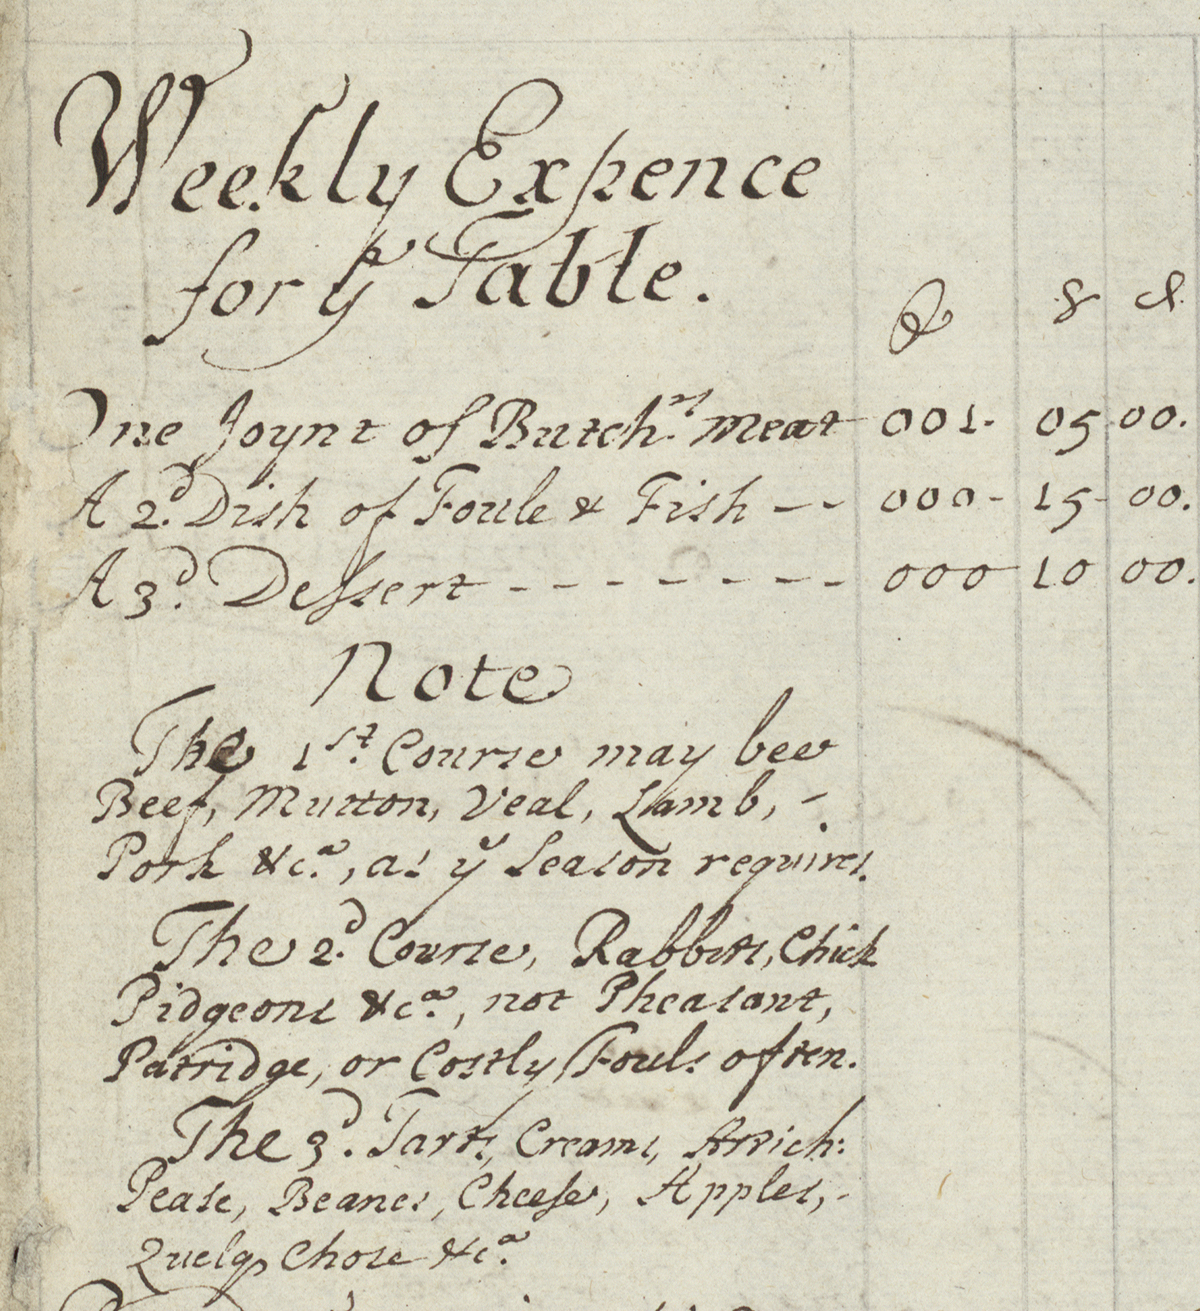 Weekly Expence
for yᵉ Table.
£ s d
One Joynt of Butchʳˢ meat 001. 05 00.
A 2ᵈ. Dish of Foule & Fish -- 000- 15- 00.
A 3ᵈ. Dessert - - - - - - - 000 10 00.
Note
The 1ˢᵗ. Course may bee
Beef, Mutton, Veal, Lamb, -
Pork &cᵃ., as yᵉ Season requires.
The 2ᵈ. Course, Rabbitts, Chick
Pidgeons &cᵃ., not Pheasant,
Patridge, or Costly Fouls often.
The 3ᵈ. Tarts, Creams, Artich:
Pease, Beanes, Cheese, Apples, -
Quelq Chose &cᵃ.